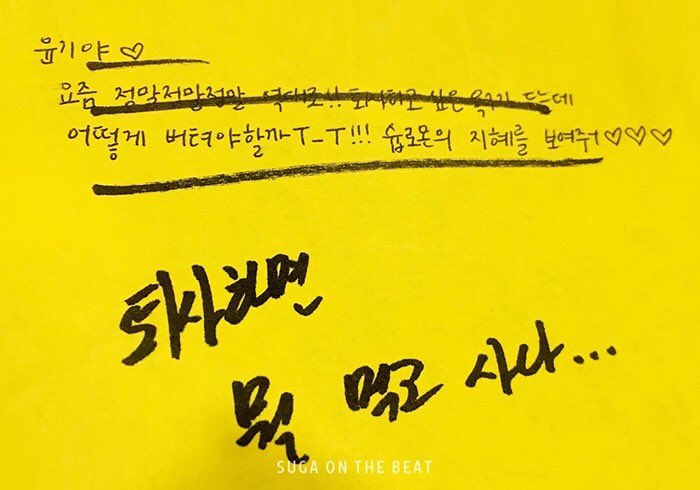 윤기야♡
요즘 정말정말정말 역대로!! 퇴사하고 싶은 욕구가 드는데
어떻게 버텨야할까ㅜ_ㅜ!!! 슙로몬의 지혜를 보여줘♡♡♡
퇴사하면
뭘 먹고 사나...
SUGA ON THE BEAT